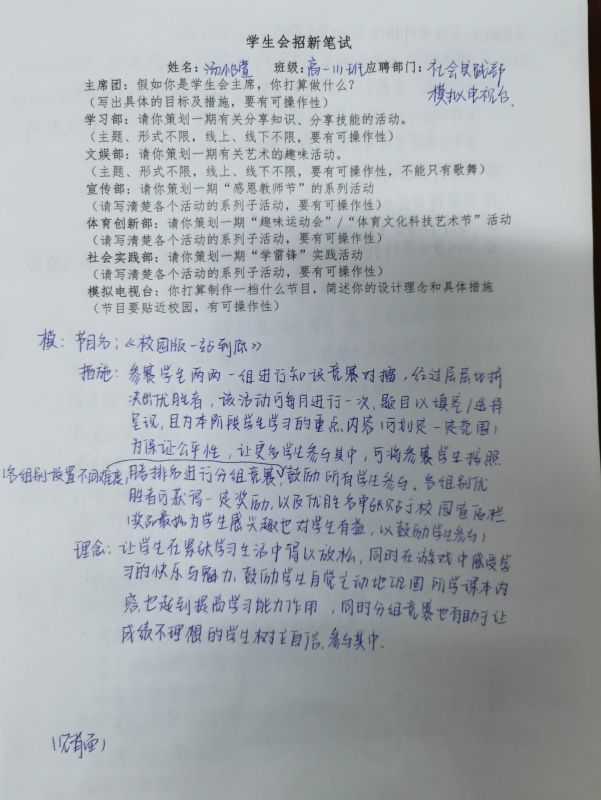 学生会招新笔试
姓名:汤 萱 班级:高一(1)班 应聘部门:社会实践部
模拟电视台、
主席团:假如你是学生会主席,你打算做什么?
(写出具体的目标及措施,要有可操作性)
学习部:请你策划一期有关分享知识、分享技能的活动。
(主题、形式不限,线上、线下不限,要有可操作性)
文娱部:请你策划一期有关艺术的趣味活动。
(主题、形式不限,线上、线下不限,要有可操作性,不能只有歌舞)
宣传部:请你策划一期“感恩教师节”的系列活动
(请写清楚各个活动的系列子活动,要有可操作性)
体育创新部:请你策划一期“趣味运动会”/“体育文化科技艺术节”活动
(请写清楚各个活动的系列子活动,要有可操作性)
社会实践部:请你策划一期“学雷锋”实践活动
(请写清楚各个活动的系列子活动,要有可操作性)
模拟电视台:你打算制作一档什么节目,简述你的设计理念和具体措施
(节目要贴近校园,有可操作性)
模:节目名:《校园版一站到底》
措施:参赛学生两两一组进行知识竞赛对擂,经过层层比拼
决出优胜者,该活动可每月进行一次,题目以填空/选择
呈现,且为本阶段学生学习的重点内容(可划定一定范围)
为保证公平性,让更多学生参与其中,可将参赛学生按照
(各组别设置不同难度)
排名进行分组竞赛,鼓励所有学生参与。各组别优
胜者可获得一定奖励,以及优胜名单张贴于校园宣传栏
(奖品最好为学生感兴趣也对学生有益,以鼓励学生参与)
理念:让学生在紧张学习生活中得以放松,同时在游戏中感受学
习的快乐与魅力,鼓励学生自觉主动地巩固所学课本内
容,也起到提高学习能力作用,同时分组竞赛也有助于让
成绩不理想的学生树立自信,参与其中.
(见背面)